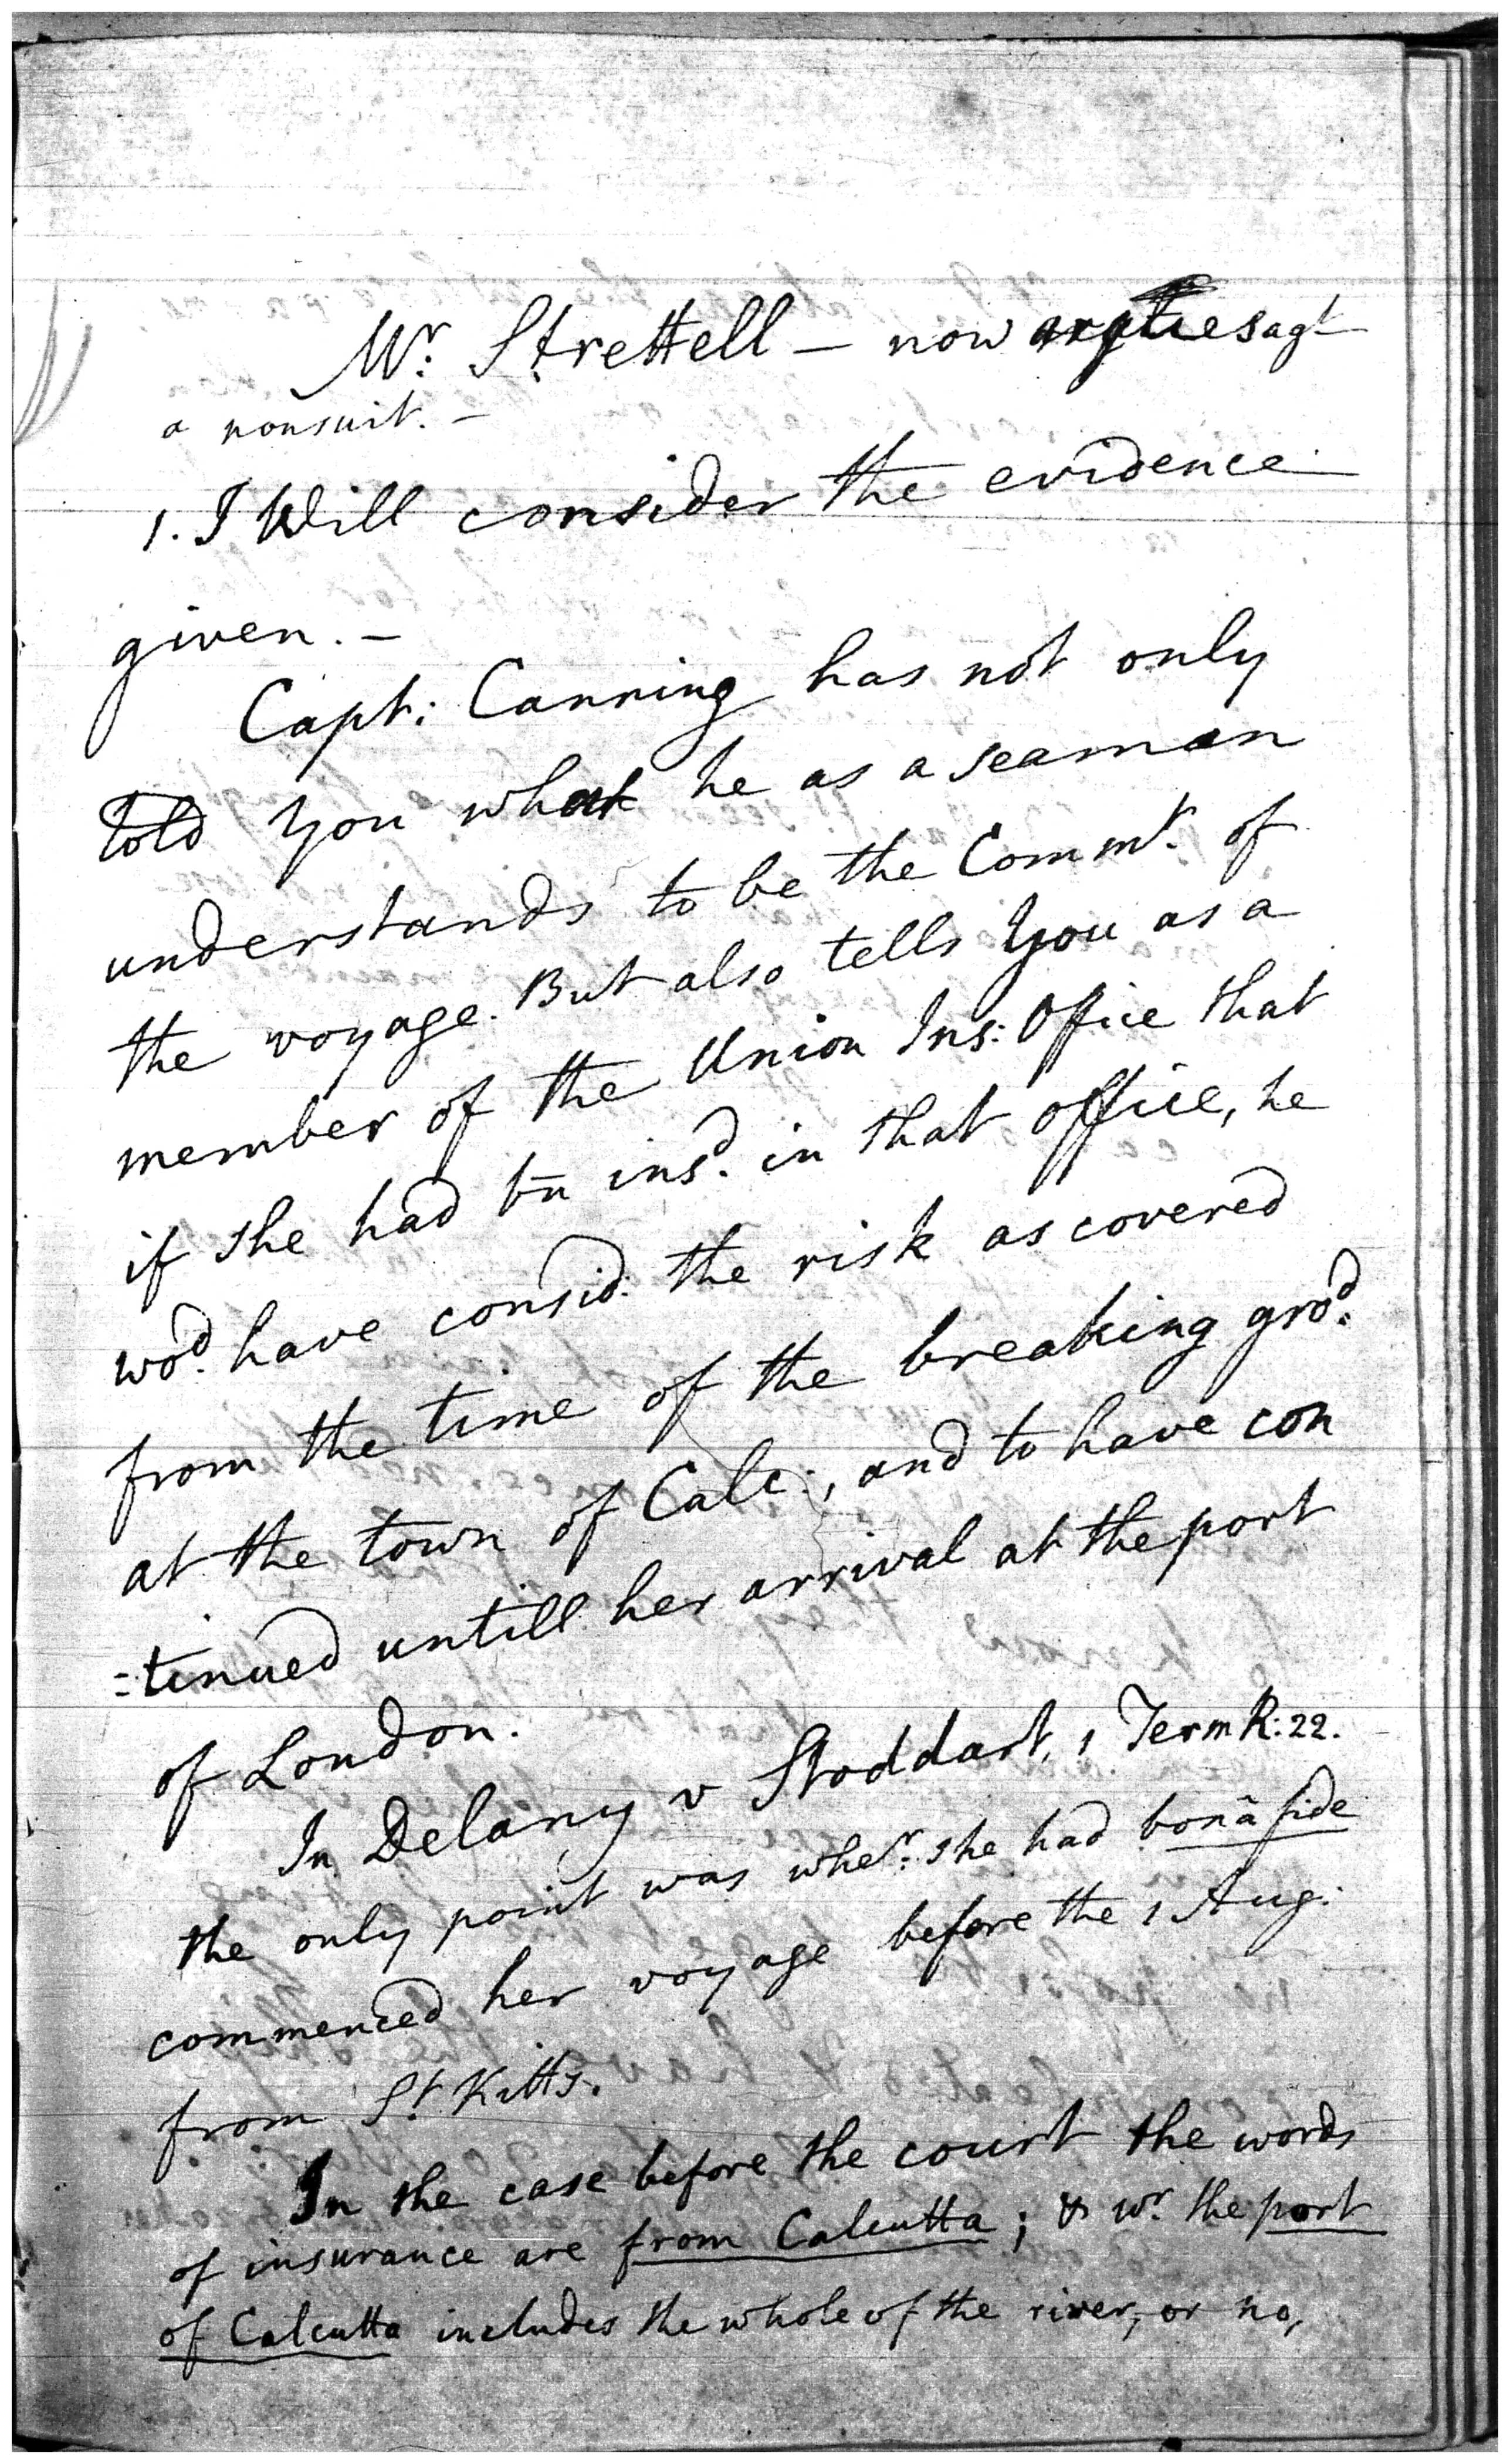 Mr. Strettell — now argues agt
a nonsuit. —
1. I Will consider the evidence
given. —
Capt: Canning has not only
told you what he as a seaman
understands to be the Commt. of
the voyage. But also tells you as a
member of the Union Ins: Office that
if she had bn insd. in that office, he
wod. have consid. the risk as covered
from the time of the breaking grod.
at the town of Calc:, and to have con
=tinued untill her arrival at the port
of London.
In Delany v Stoddart, 1 Term R: 22.
the only point was wher. she had bonâ fide
commenced her voyage before the 1 Aug:
from St Kitts.
In the case before the court the words
of insurance are from Calcutta; & wr. the port
of Calcutta includes the whole of the river, or no,